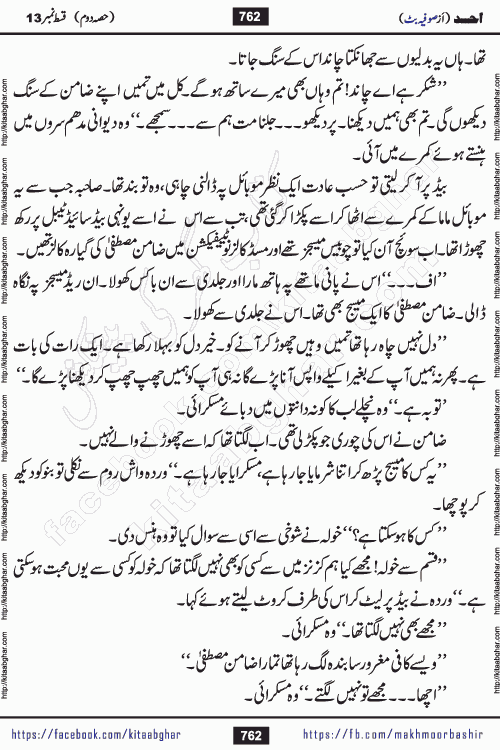 احد (از صوفیہ بٹ) 762 (حصہ دوم) قسط نمبر 13
تھا۔ ہاں یہ بدلیوں سے جھانکتا چاند اس کے سنگ جاتا۔
”شکر ہے اے چاند! تم وہاں بھی میرے ساتھ ہو گے۔ کل میں تمہیں اپنے ضامن کے سنگ
دیکھوں گی۔ تم بھی ہمیں دیکھنا۔ پر دیکھو۔۔۔جلنا مت ہم سے۔۔۔سمجھے۔“ وہ دیوانی مدھم سروں میں
ہنستے ہوئے کمرے میں آئی۔
بیڈ پر آ کر لیٹی تو حسب عادت ایک نظر موبائل پہ ڈالنی چاہی، وہ تو بند تھا۔ صاحبہ جب سے یہ
موبائل ماما کے کمرے سے اٹھا کر اسے پکڑا کر گئی تھی، تب سے اس نے اسے یونہی بیڈ سائیڈ ٹیبل پر رکھ
چھوڑا تھا۔ اب سوئچ آن کیا تو چوبیس میسجز تھے اور مسڈ کالز نوٹیفیکشن میں ضامن مصطفیٰ کی گیارہ کالز تھیں۔
”اف۔۔۔“ اس نے پانی ماتھے پہ ہاتھ مارا اور جلدی سے ان باکس کھولا۔ ان ریڈ میسجز پہ نگاہ
ڈالی۔ ضامن مصطفیٰ کا ایک میسج بھی تھا۔ اس نے جلدی سے کھولا۔
”دل نہیں چاہ رہا تھا تمہیں وہیں چھوڑ کر آنے کو۔ خیر دل کو بہلا رکھا ہے۔ ایک رات کی بات
ہے۔ پھر نہ ہمیں آپ کے بغیر اکیلے واپس آنا پڑے گا نہ ہی آپ کو ہمیں چھپ چھپ کر دیکھنا پڑے گا۔“
’توبہ ہے۔‘ وہ نچلے لب کا کونہ دانتوں میں دبائے مسکرائی۔
ضامن نے اس کی چوری جو پکڑ لی تھی۔ اب لگتا تھا کہ اسے چھوڑنے والے نہیں۔
”یہ کس کا میسج پڑھ کر اتنا شرمایا جا رہا ہے، مسکرایا جا رہا ہے۔“ وردہ واش روم سے نکلی تو بنو کو دیکھ
کر پوچھا۔
”کس کا ہو سکتا ہے؟“ خولہ نے شوخی سے اسی سے سوال کیا تو وہ ہنس دی۔
”قسم سے خولہ! مجھے کیا ہم کزنز میں سے کسی کو بھی نہیں لگتا تھا کہ خولہ کو کسی سے یوں محبت ہو سکتی
ہے۔“ وردہ نے بیڈ پر لیٹ کر اس کی طرف کروٹ لیتے ہوئے کہا۔
”مجھے بھی نہیں لگتا تھا۔“ وہ مسکرائی۔
”ویسے کافی مغرور سا بندہ لگ رہا تھا تمہارا ضامن مصطفیٰ۔“
”اچھا۔۔۔مجھے تو نہیں لگتے۔“ وہ مسکرائی۔
https://facebook.com/kitaabghar 762 https://fb.com/makhmoorbashir
http://kitaabghar.com
facebook.com/kitaabghar
kitaabghar.com